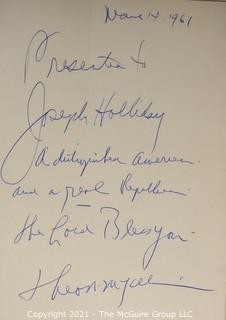 14, 1961
Presented to
Joseph Holliday
A distinguished American
and a real Republican
The Lord Bless you
Copyright 2021 - The McGuire Group LLC